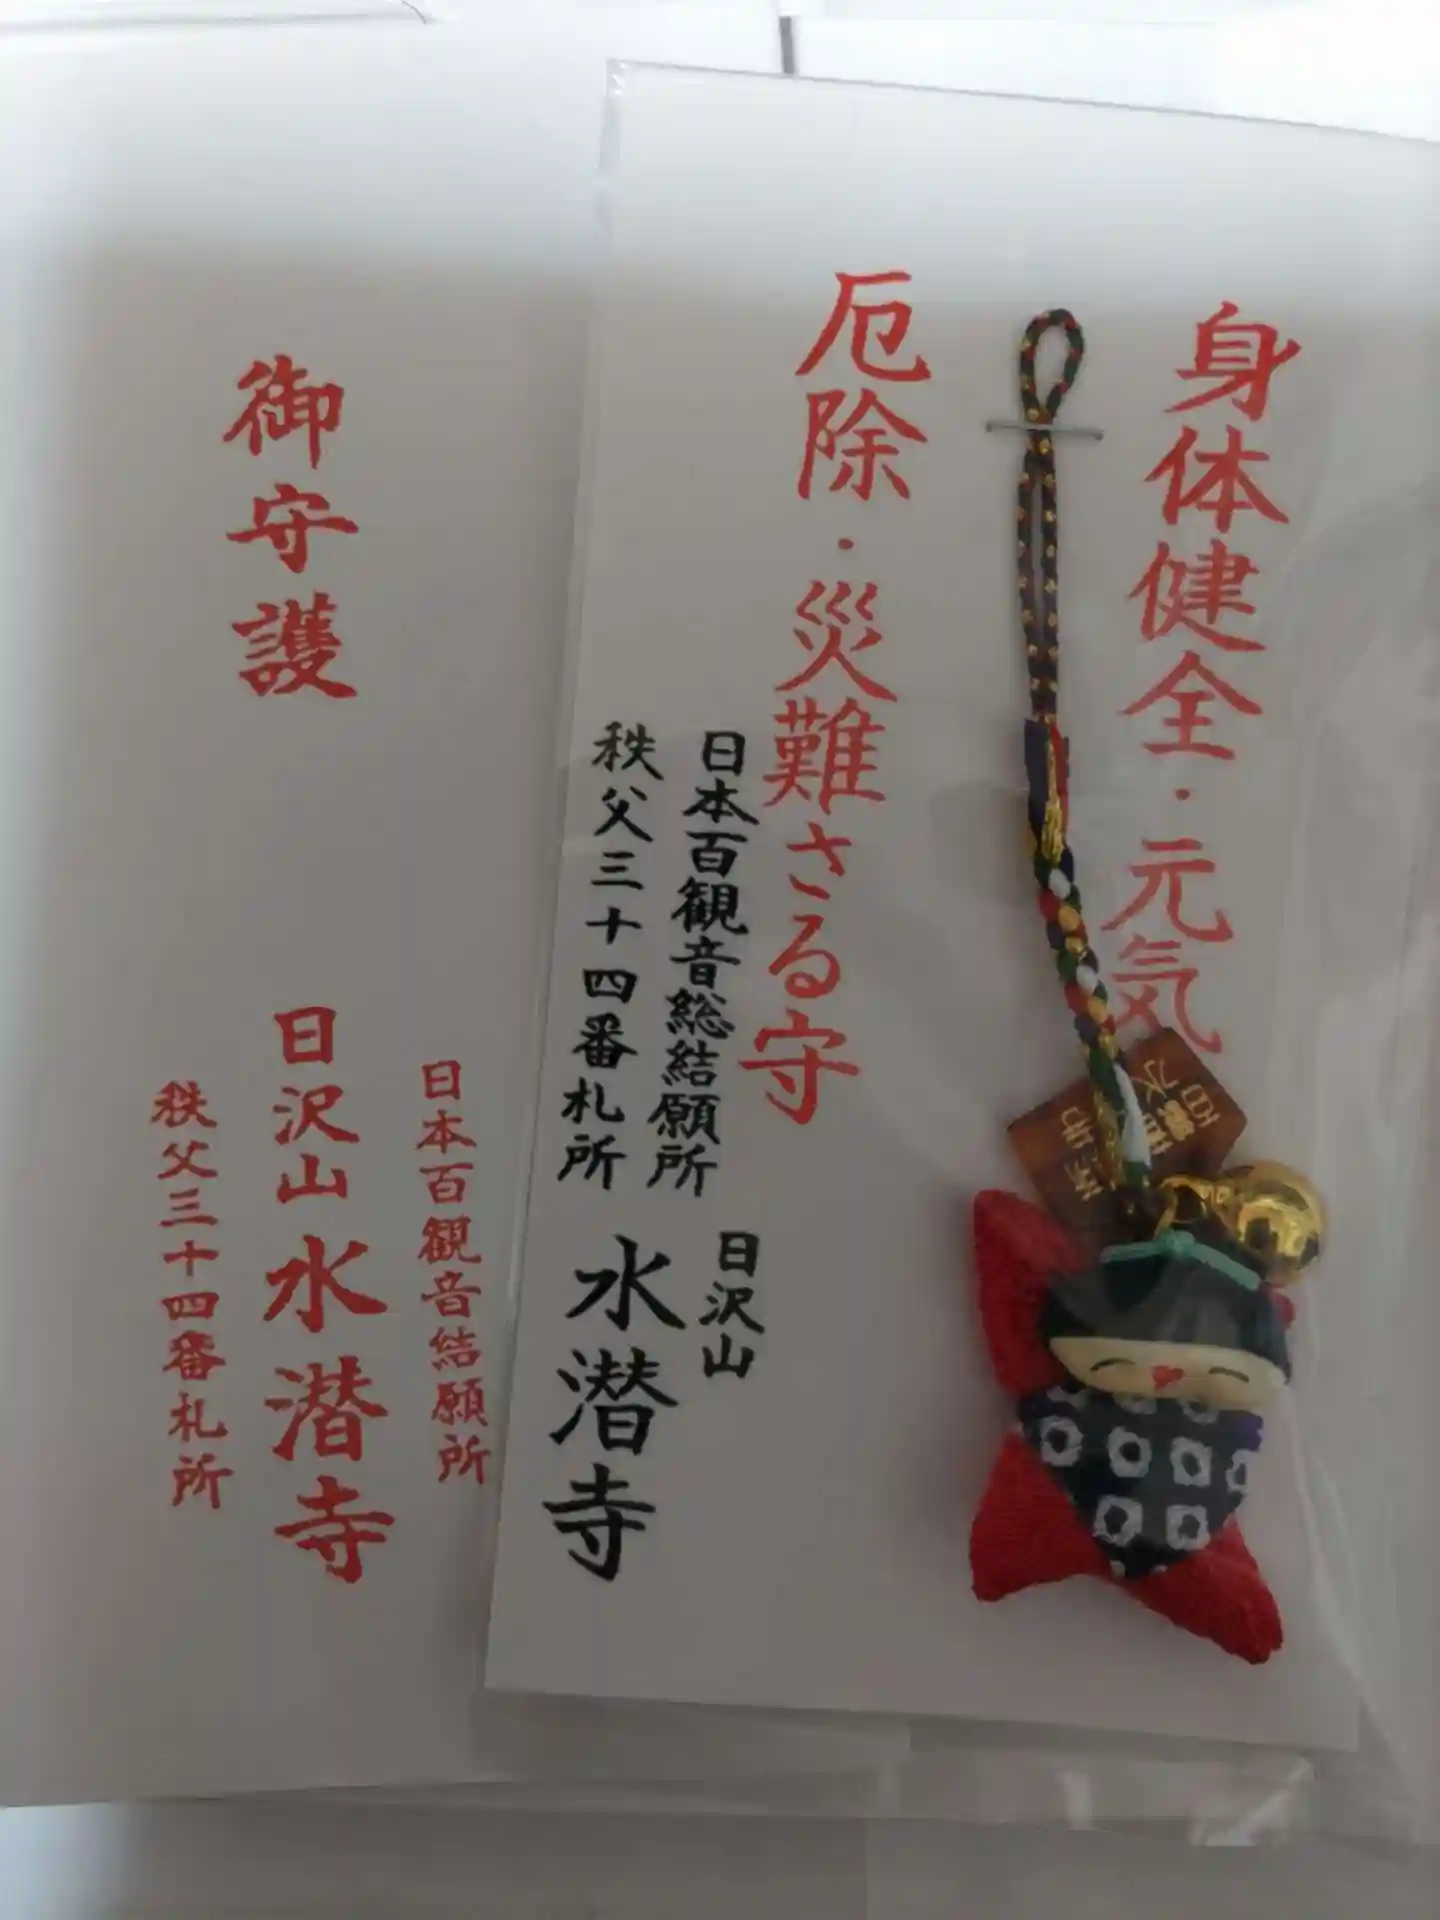 身体健全・元気
厄除・災難さる守
日本百観音総結願所
秩父三十四番札所
日沢山
水潜寺
御守護
日本百観音結願所
日沢山 水潜寺
秩父三十四番札所